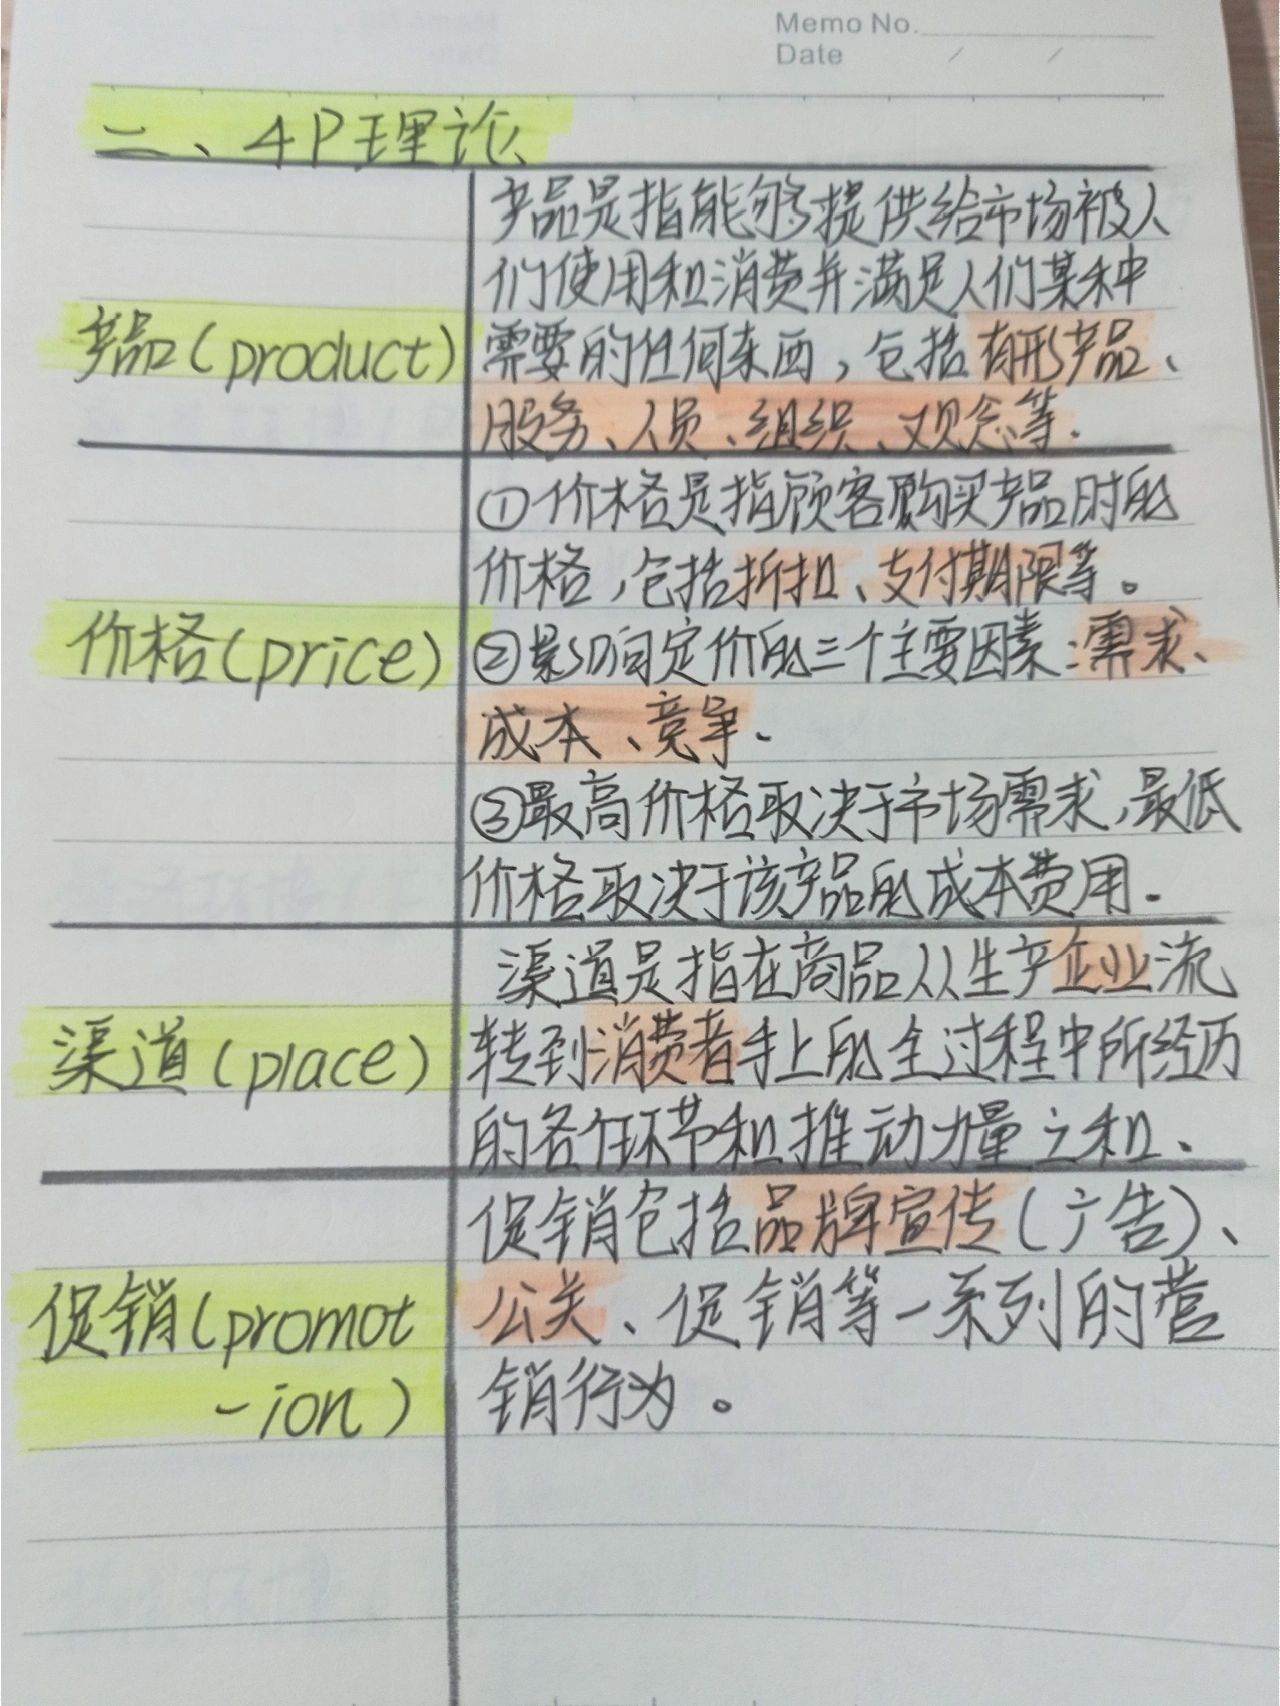 Memo No.
Date / /
二、4P理论
产品是指能够提供给市场被人
们使用和消费并满足人们某种
产品(product)
需要的任何东西，包括有形产品、
服务、人员、组织、观念等.
①价格是指顾客购买产品时的
价格,包括折扣、支付期限等。
价格(price)
②影响定价的三个主要因素:需求、
成本、竞争.
③最高价格取决于市场需求,最低
价格取决于该产品的成本费用.
渠道是指在商品从生产企业流
渠道(place)
转到消费者手上的全过程中所经历
的各个环节和推动力量之和、
促销包括品牌宣传(广告)、
促销(promot
-ion)
公关、促销等一系列的营
销行为。